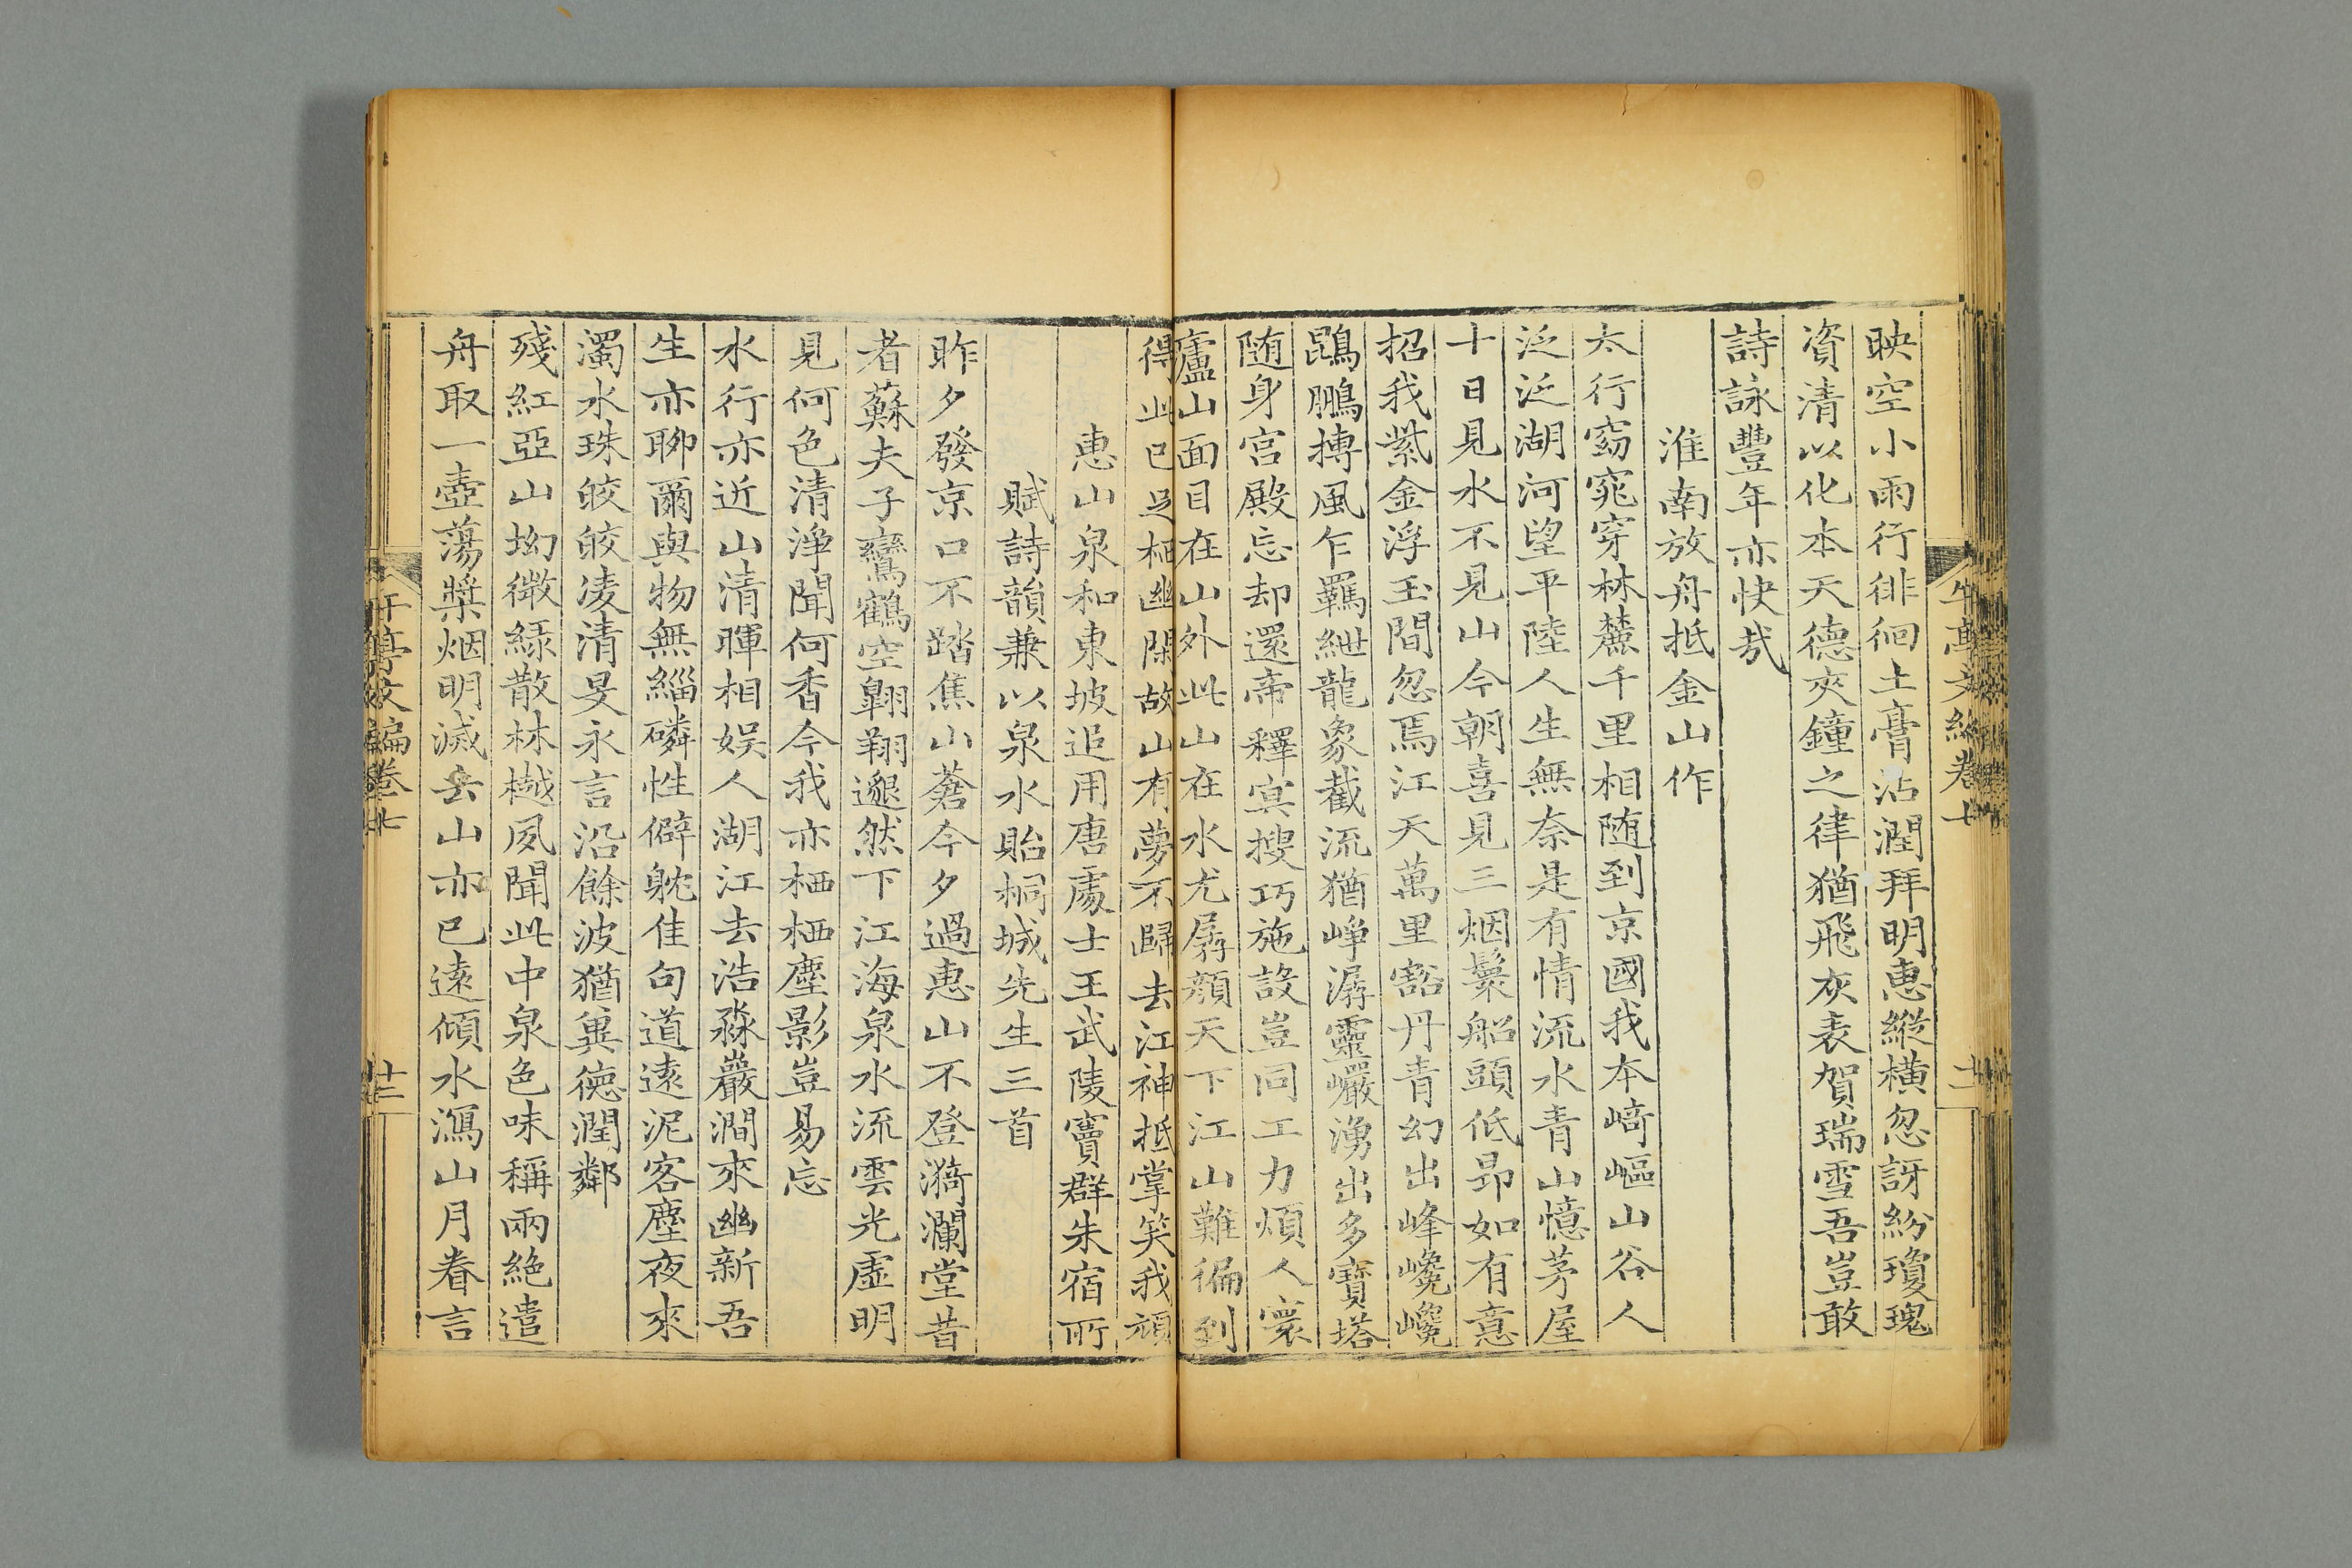 映空小雨行徘徊土膏沾潤拜明惠縱橫忽訝紛瓊瑰
資清以化本天德夾鐘之律猶飛灰表賀瑞雪吾豈敢
詩詠豐年亦快哉
淮南放舟抵金山作
太行窈窕穿林麓千里相随到京國我本﨑嶇山谷人
泛泛湖河望平陸人生無奈是有情流水青山憶茅屋
十日見水不見山今朝喜見三烟鬟船頭低昻如有意
招我紫金浮玉間忽焉江天萬里豁丹青幻出峰巉巉
鵾鵬摶風乍羈紲龍象截流猶峥潺靈巖湧出多寶塔
随身宫殿忘却還帝釋㝠搜巧施設豈同工力煩人寰
廬山面目在山外此山在水尤孱顔天下江山難徧到
得此已足栖幽閑故山有夢不歸去江神抵掌笑我頑
惠山泉和東坡追用唐處士王武陵竇群朱宿所
賦詩韻兼以泉水貽桐城先生三首
昨夕發京口不踏焦山蒼今夕過惠山不登漪瀾堂昔
者蘇夫子鸞鶴空翺翔邈然下江海泉水流雲光虛明
見何色清淨聞何香今我亦栖栖塵影豈易忘
水行亦近山清暉相娱人湖江去浩淼巖澗來幽新吾
生亦聊爾與物無緇磷性僻躭佳句道遠泥客塵夜來
濁水珠皎皎凌清旻永言沿餘波猶兾德潤鄰
殘紅亞山坳微緑散林樾夙聞此中泉色味稱兩絶遣
舟取一壺蕩槳烟明滅去山亦已遠傾水瀉山月眷言
午亭文編卷七
廿三